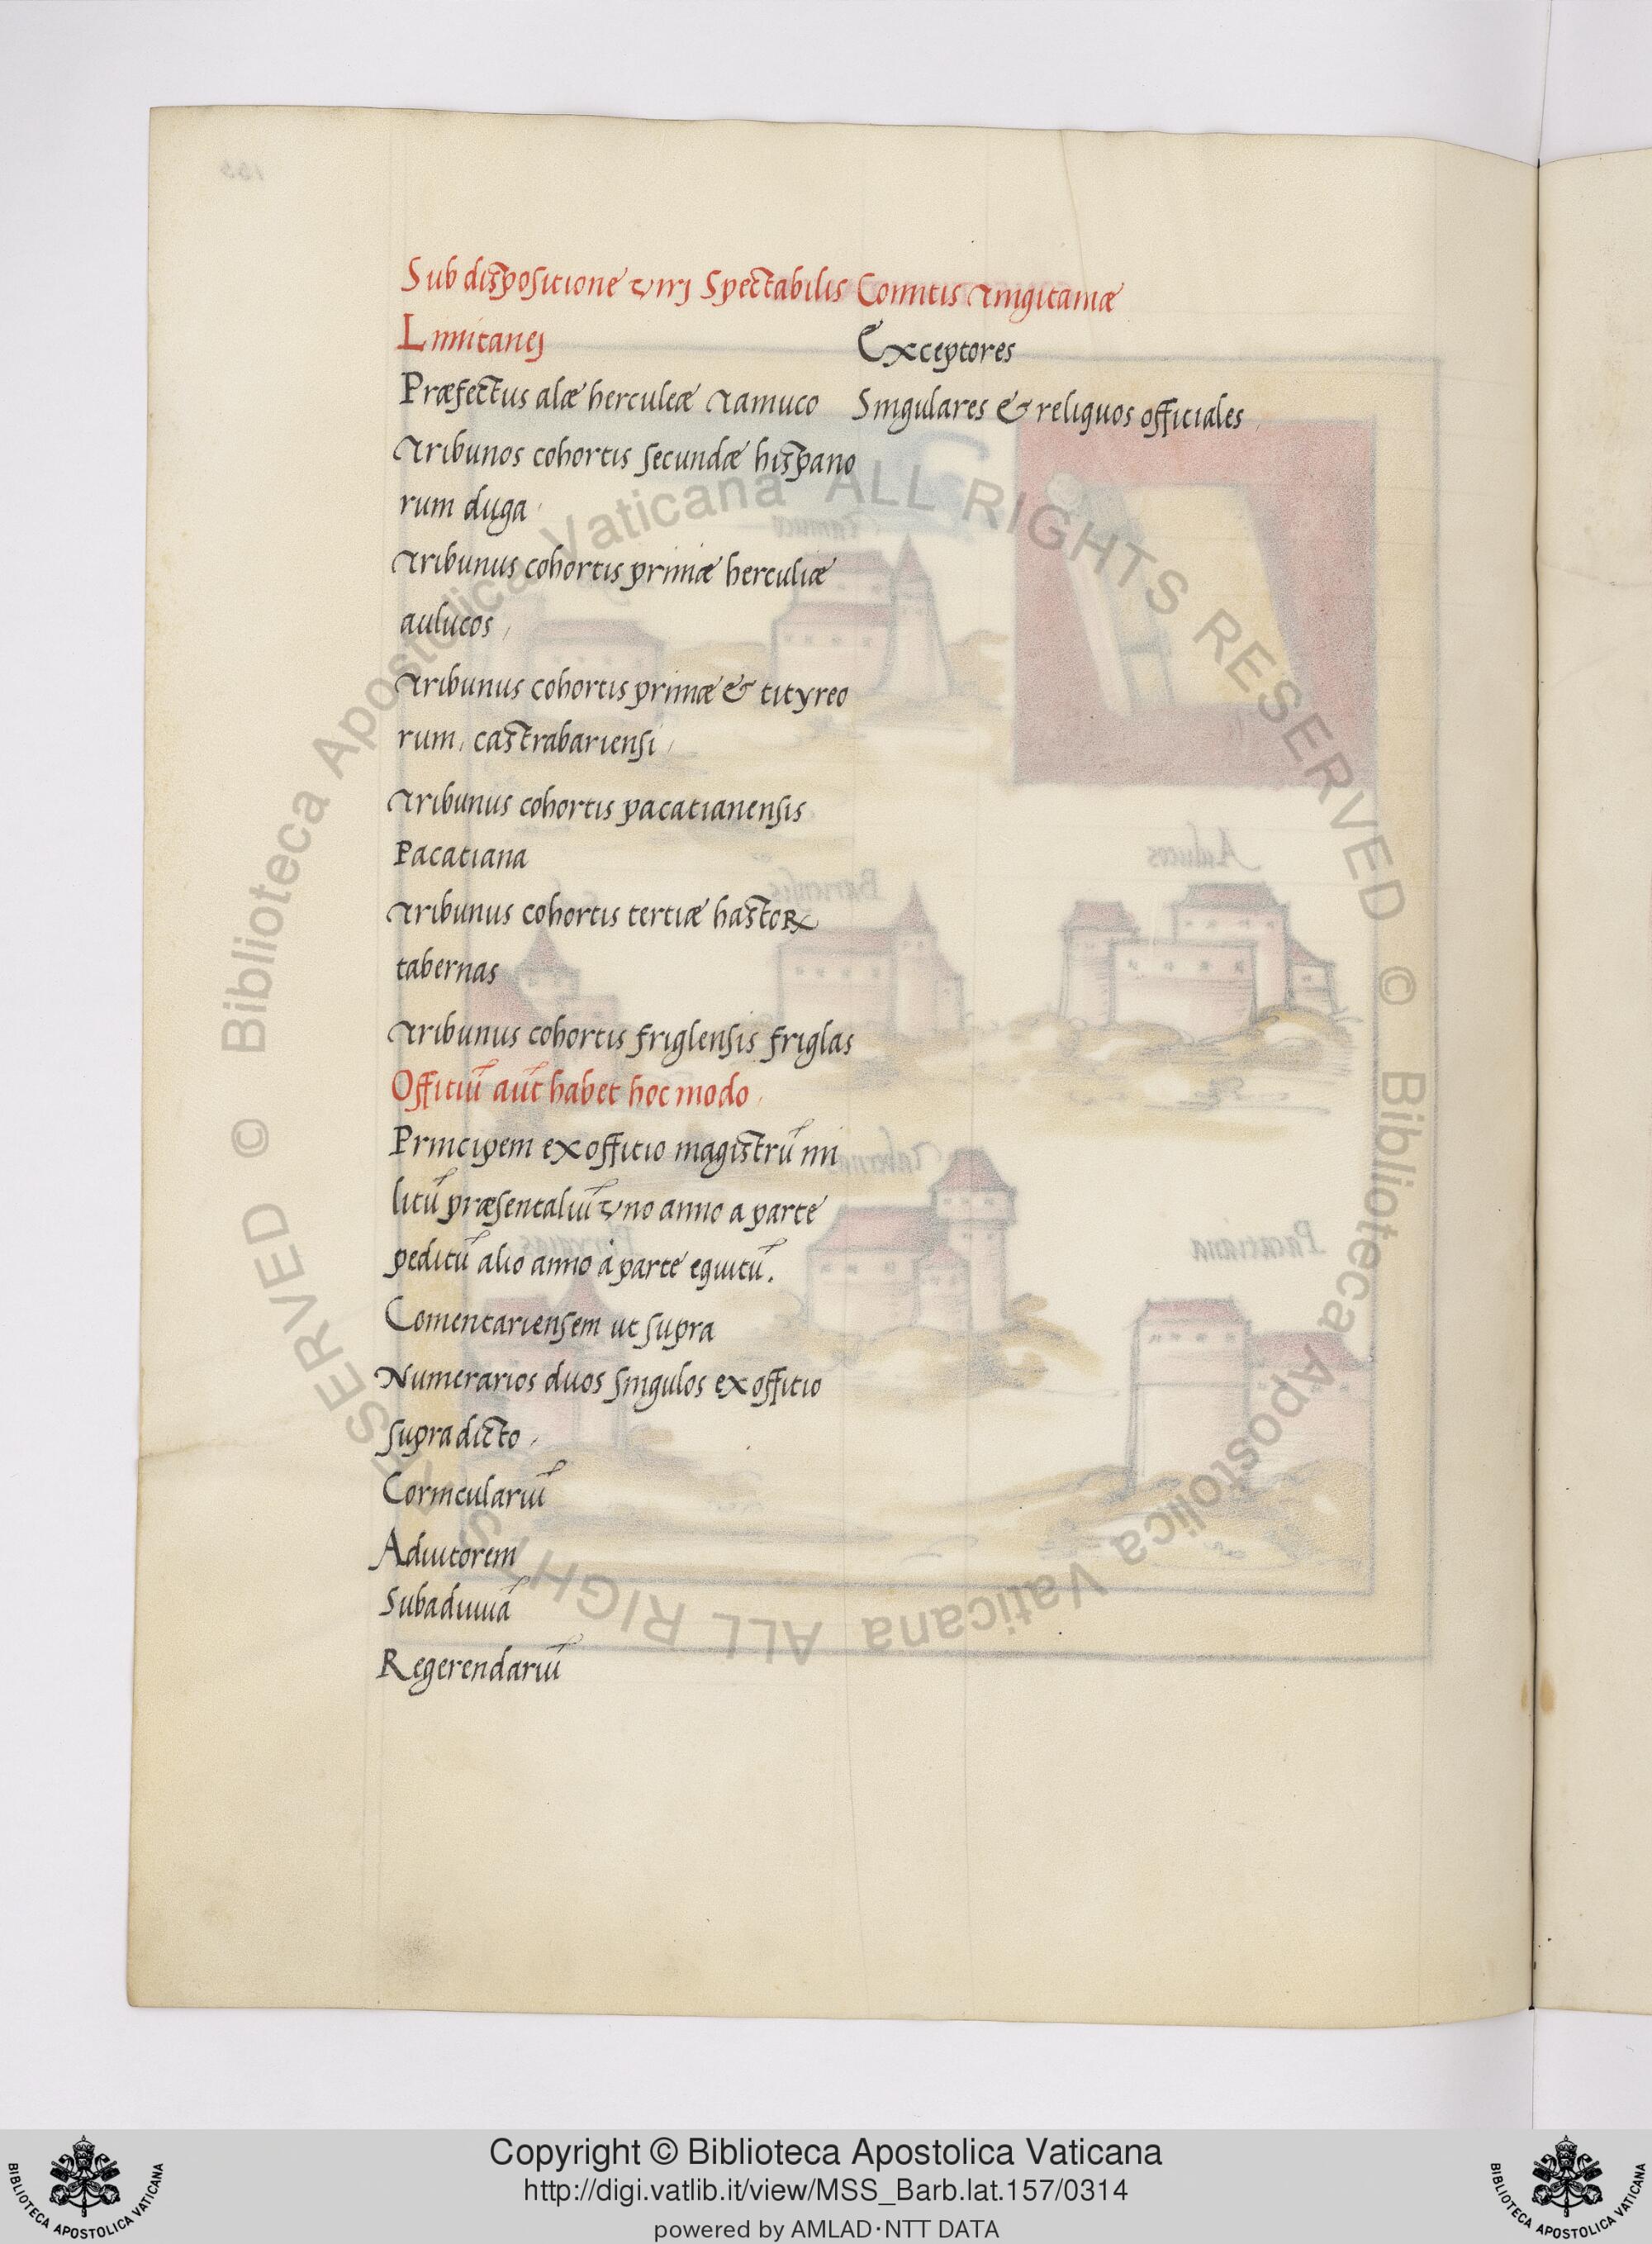 Sub dispositione viri Spectabilis Comitis Tingitaniæ
Limitanej
Præfectus alæ herculeæ Tamuco
Tribunos cohortis secundæ hispano
rum duga
Tribunus cohortis primæ herculiæ
aulucos
Tribunus cohortis primæ & tityreo
rum, castrabariensi
Tribunus cohortis pacatianensis
Pacatiana
Tribunus cohortis tertiæ hastoꝝ
tabernas
Tribunus cohortis friglensis friglas
Offitiū aūt habet hoc modo
Principem ex offitio magistrū mi
litū præsentaliū uno anno a parte
peditū alio anno à parte equitū.
Comentariensem ut supra
Numerarios duos singulos ex offitio
supradicto
Corniculariū
Adiutorem
Subadiuuā
Regerendariū
Exceptores
Singulares & reliquos officiales
Tamuco
Aulucos
Bariensis
Tabernas
Pacatiana
© Biblioteca Apostolica Vaticana ALL RIGHTS RESERVED
© Biblioteca Apostolica Vaticana ALL RIGHTS RESERVED
Copyright © Biblioteca Apostolica Vaticana
http://digi.vatlib.it/view/MSS_Barb.lat.157/0314
powered by AMLAD·NTT DATA
BIBLIOTECA APOSTOLICA VATICANA
BIBLIOTECA APOSTOLICA VATICANA